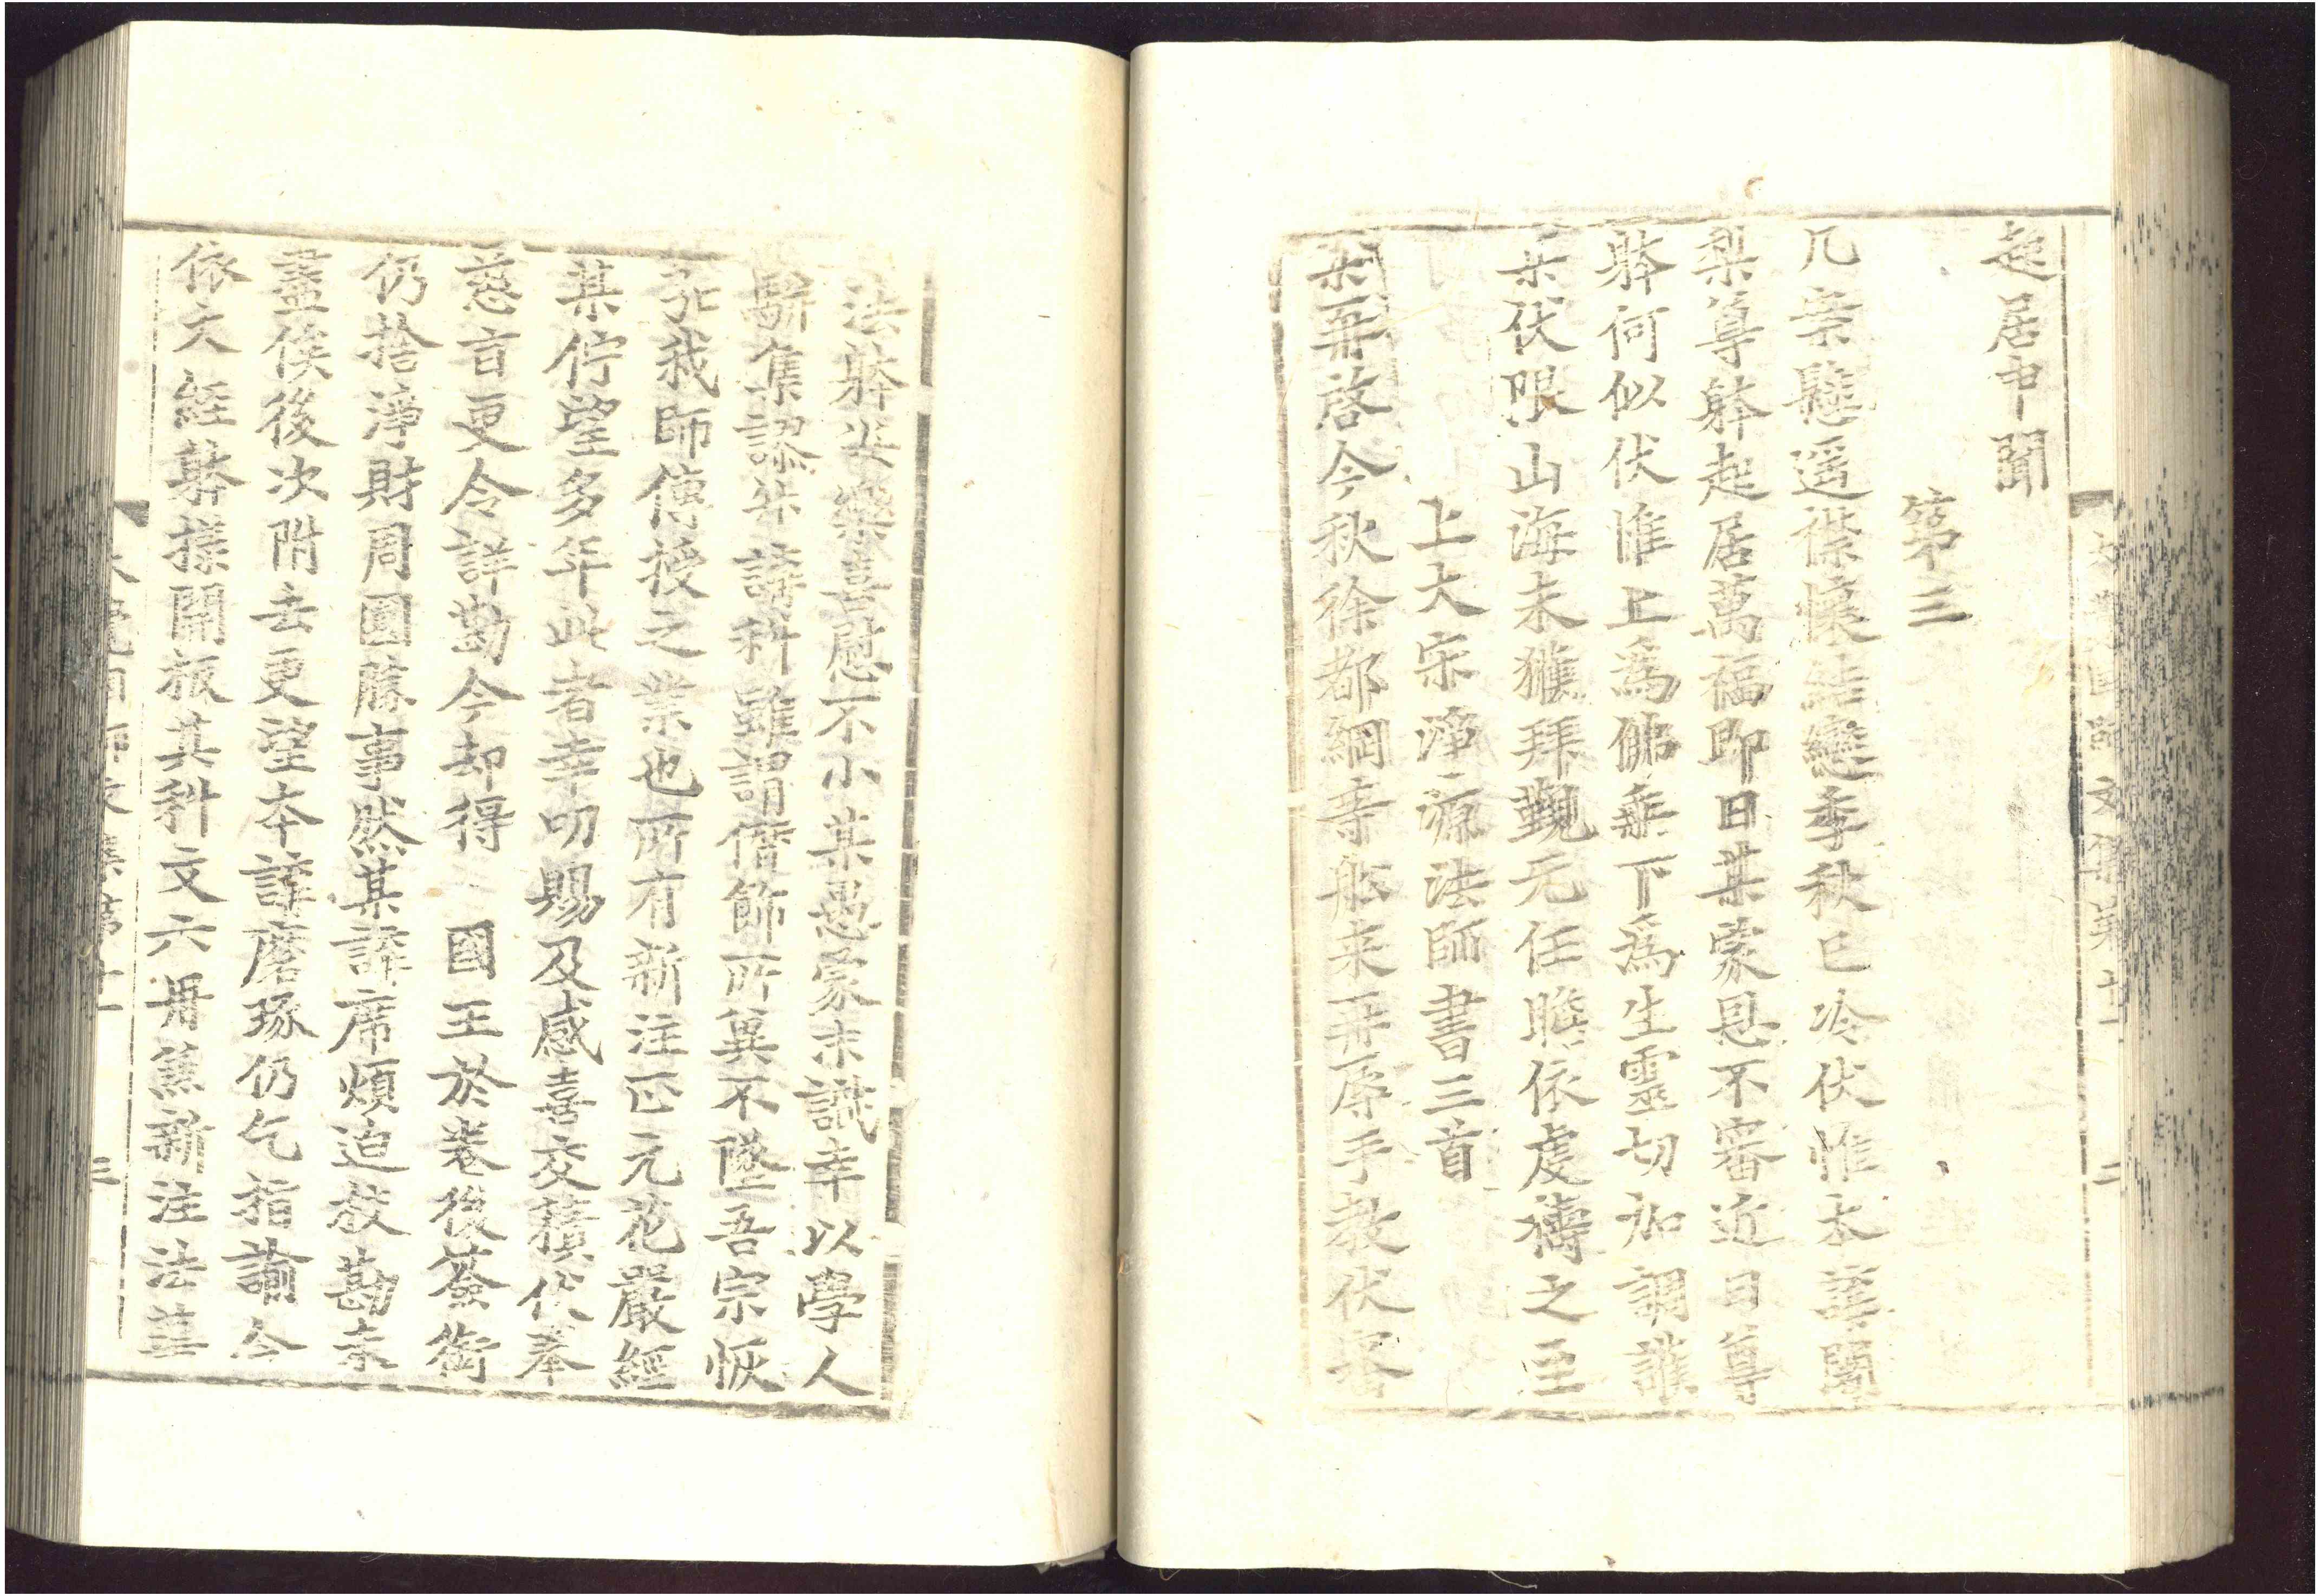 起居申聞
第三
几素懸遥襟懷結戀季秋已冷伏惟本講闍
梨尊軆起居萬福即日某蒙恩不審近日尊
軆何似伏惟上爲佛乘下爲生靈切加調護
某伏限山海未獲拜覲元任瞻依虔禱之至
上大宋淨源法師書三首
某再啓今秋徐都綱寺舩来再辱手教伏審
法軆安樂喜慰不小某愚冢末識幸以學人
集講科雖謂僭飾所冀不墜吾宗恢
弘我師傳授之業也所有新注正元花嚴經
某佇望多年此者幸叨賜及感喜交積伏奉
慈旨更令詳勘今却得 國王於卷後簽銜
仍捨淨財周圓勝事然某講席煩迫挍勘未
盡俟後次附去更望本講磨琢仍乞指諭今
依大經軆㨾開板其科文六冊并新注法華
大覺國師文集第十一 二
大覺國師文集第十一 三